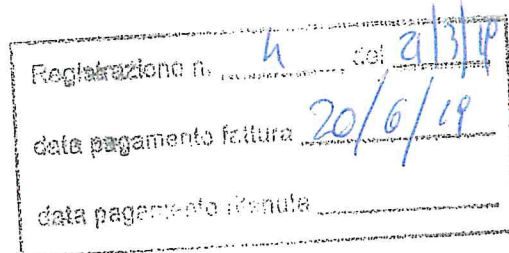 Registrazione n. 4 del 21/3/19
data pagamento fattura 20/6/19
data pagamento ritenuta